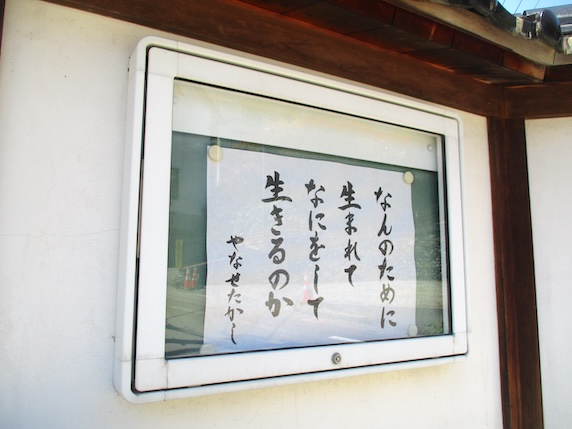 なんのために
生まれて
なにをして
生きるのか
やなせたかし